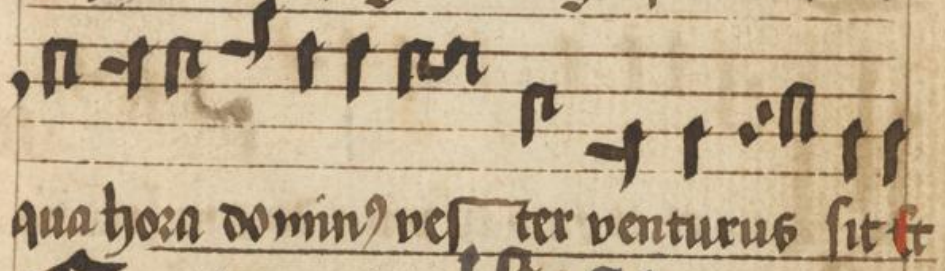 qua hora dominꝰ ves ter venturus sit Et